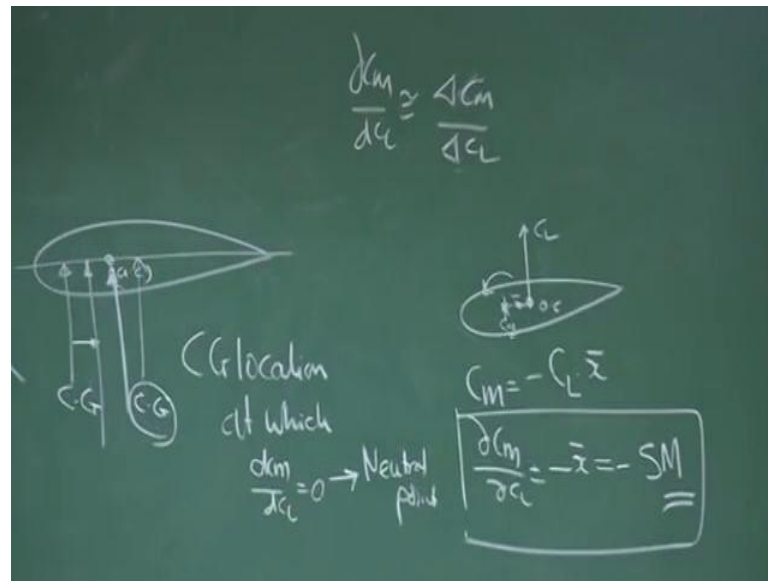 dCm/dCL ≅ ΔCm/ΔCL
a.c
C.G
C.G
CG location
at which
dCm/dCL = 0 → Neutral point
CL
x̄
a.c
Cg
Cm = -CL·x̄
∂Cm/∂CL = -x̄ = - SM